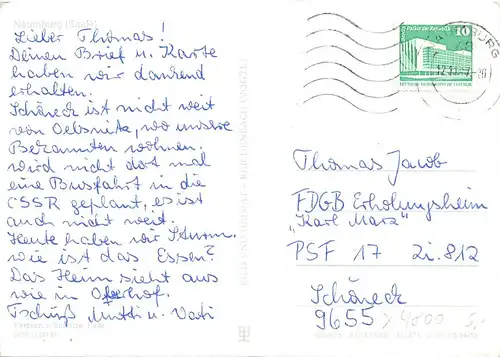 Naumburg (Saale)
Lieber Thomas!
Deinen Brief u. Karte
haben wir dankend
erhalten.
Schöneck ist nicht weit
von Oelsnitz, wo unsere
Bekannten wohnen.
wird nicht dort mal
eine Busfahrt in die
CSSR geplant, es ist
auch nicht weit.
Heute haben wir Sturm.
wie ist das Essen?
Das Heim sieht aus
wie in Oberhof.
Tschüß Mutti u. Vati
10
Thomas Jacob
FDGB Erholungsheim
„Karl Marx"
PSF 17 Zi. 812
Schöneck
9655
4800 5,-